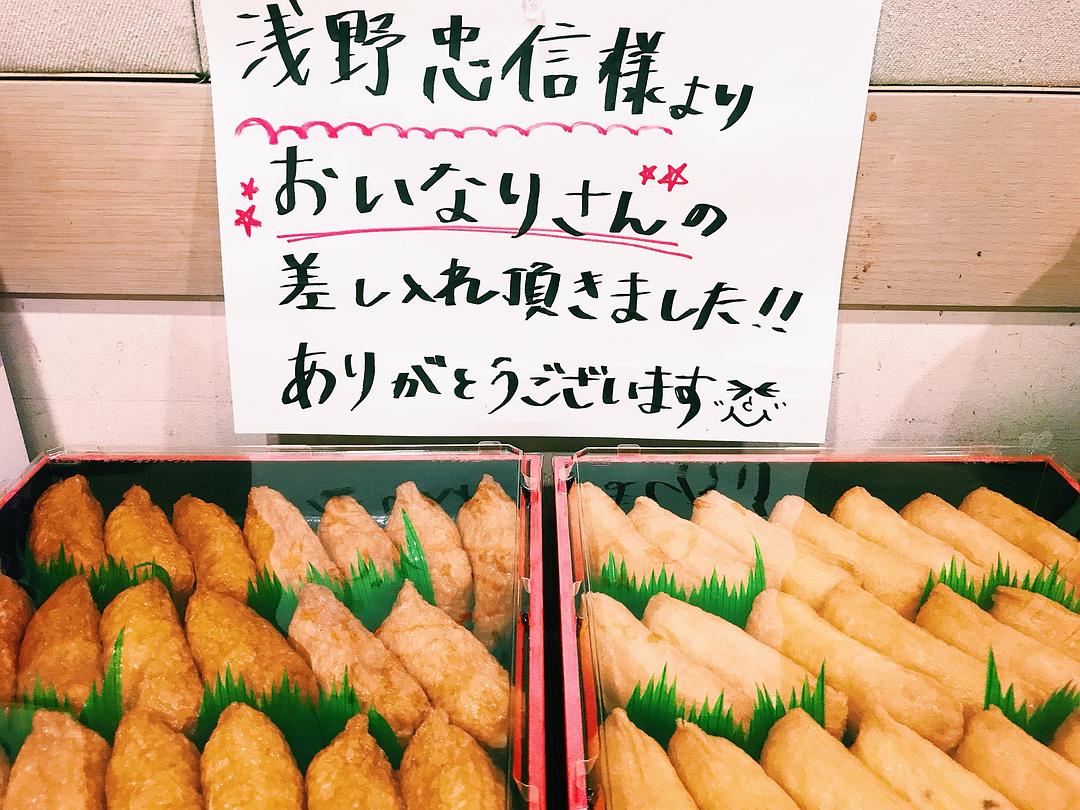 浅野忠信様より
おいなりさんの
差し入れ頂きました!!
ありがとうございます